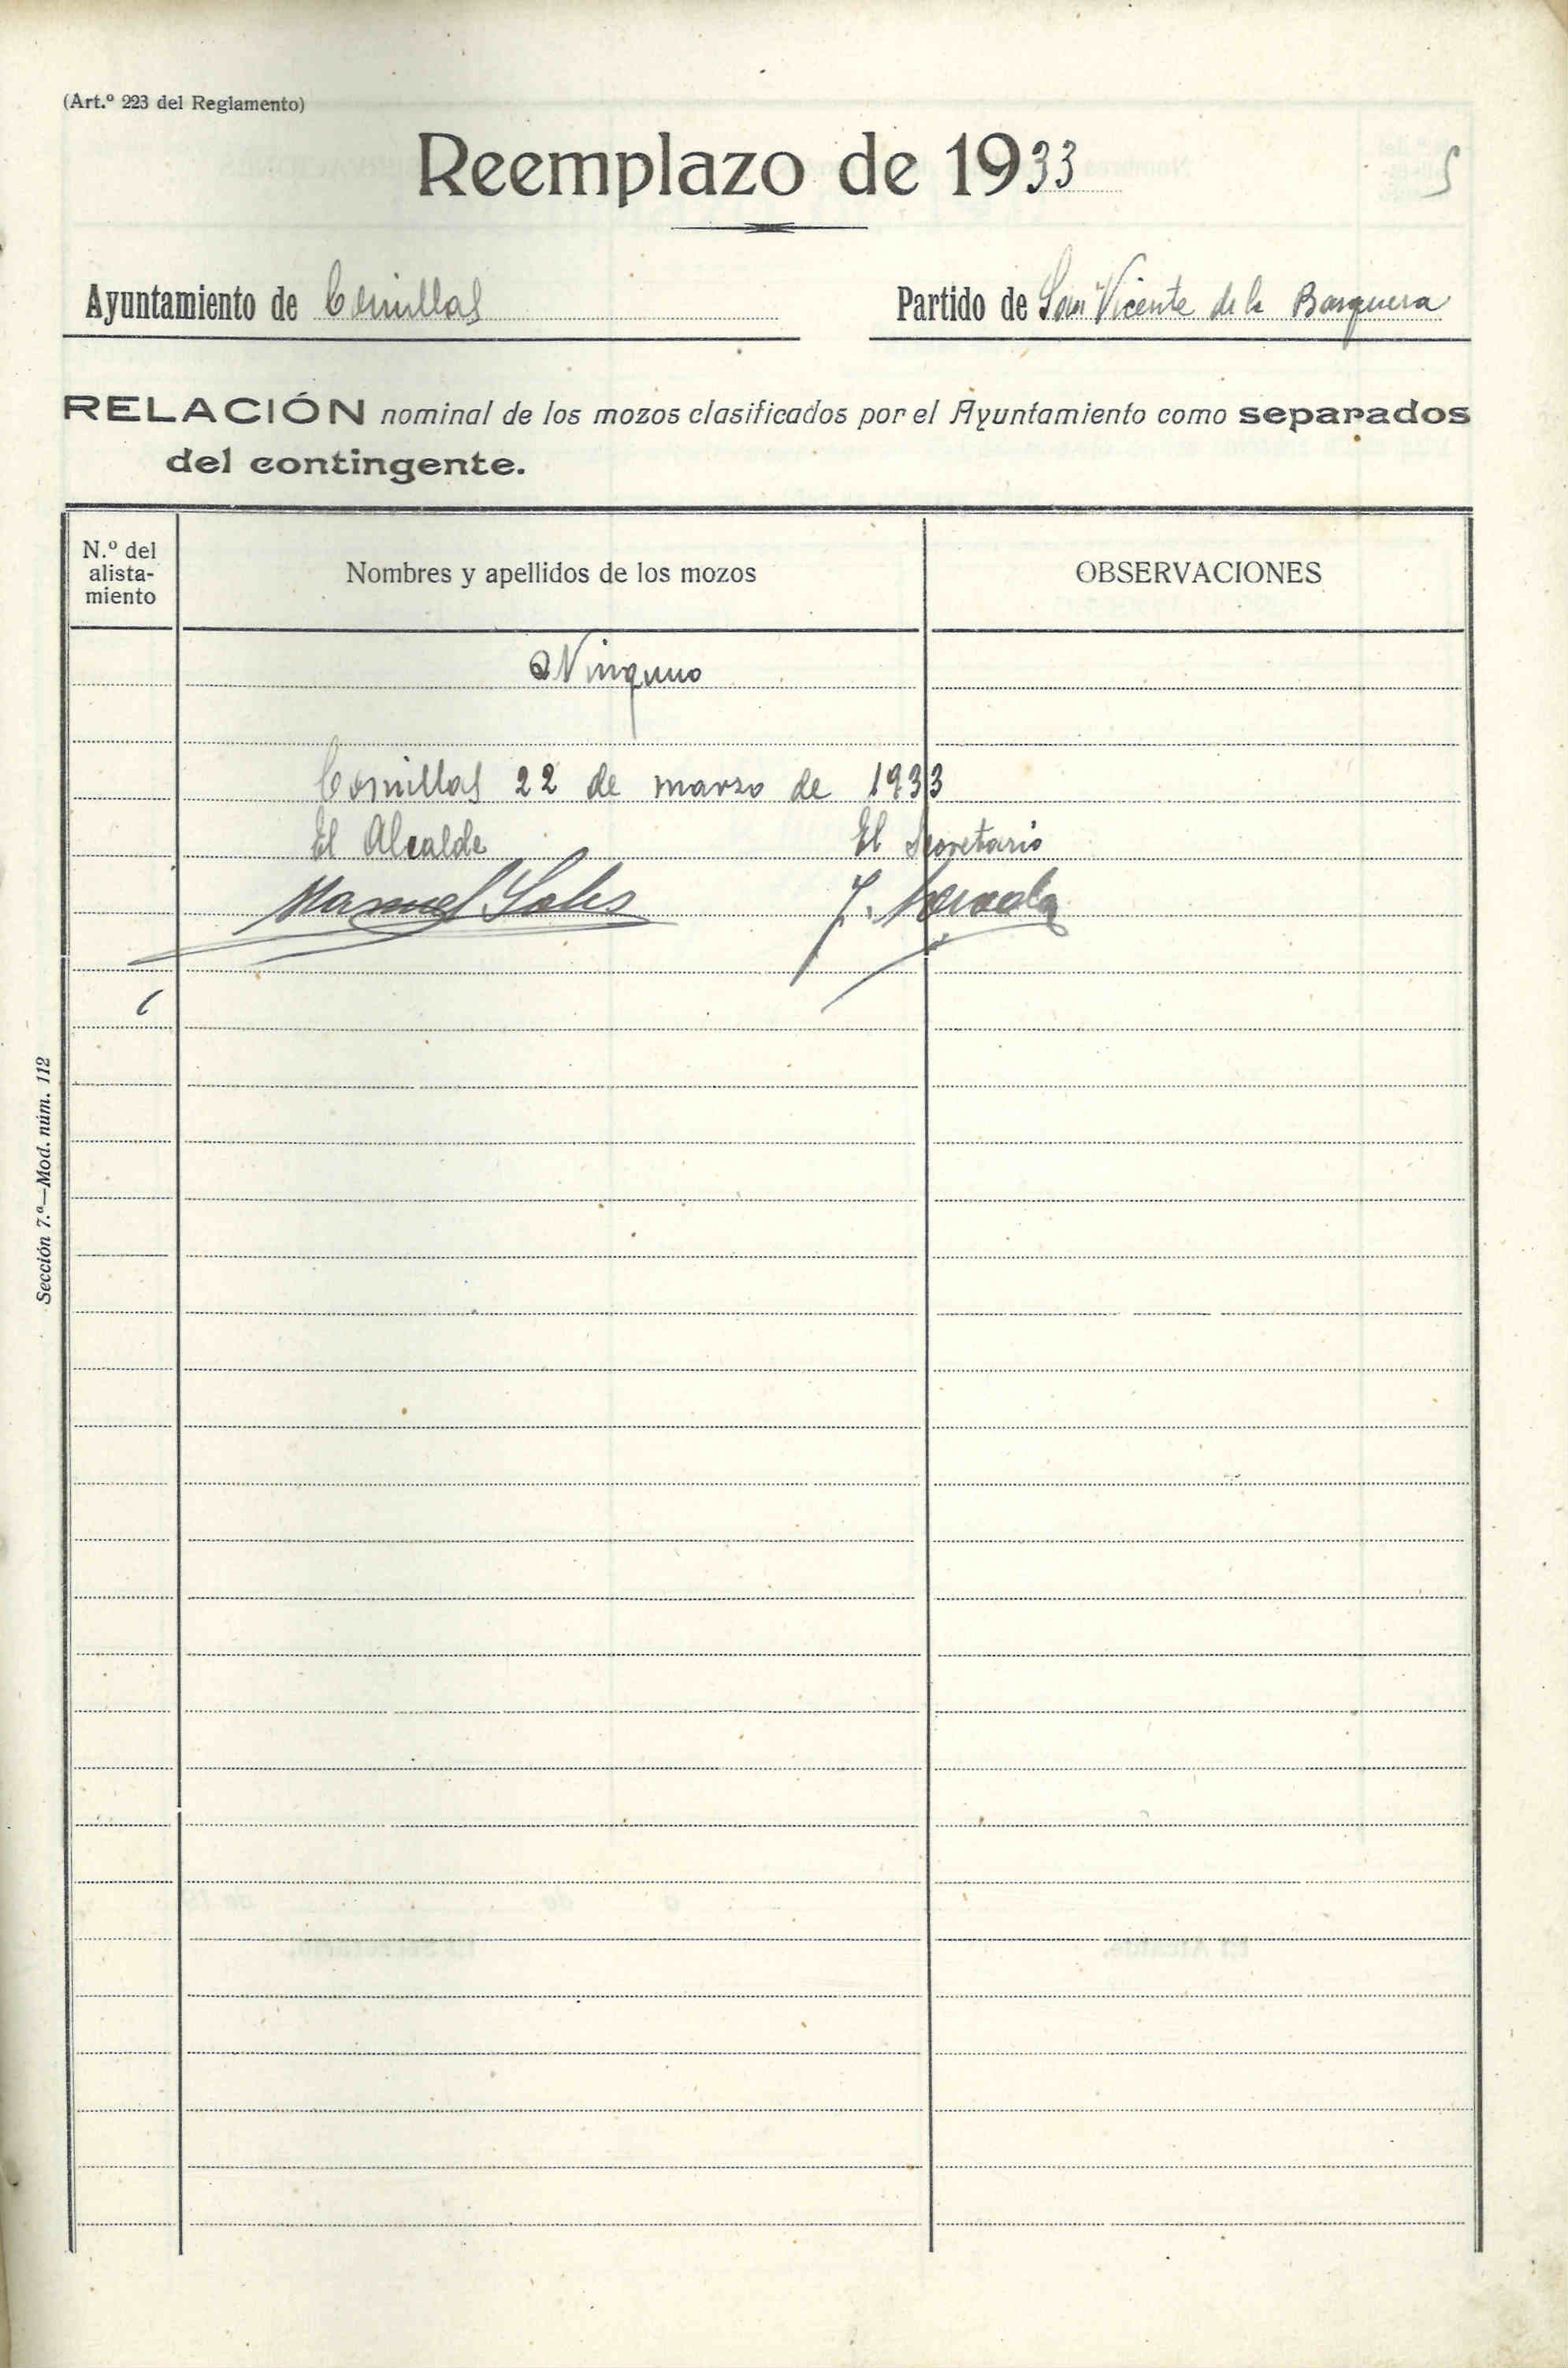 (Art.º 223 del Reglamento)
Reemplazo de 1933
5
Ayuntamiento de Comillas
Partido de San Vicente de la Barquera
RELACIÓN nominal de los mozos clasificados por el Ayuntamiento como separados
del contingente.
N.º del
alista-
miento
Nombres y apellidos de los mozos
OBSERVACIONES
Ninguno
Comillas 22 de marzo de 1933
El Alcalde El Secretario
Manuel Solís J.
Sección 7.ª—Mod. núm. 112